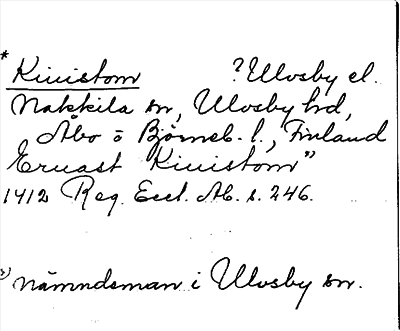 * Kiuistom ? Ulvsby el.
Nakkila sn, Ulvsby hd,
Åbo o Björneb. l., Finland
Ernast Kiuistom ²⁾
1412 Reg. Eccl. Ab. s. 246.
²⁾ nämndeman i Ulvsby sn.